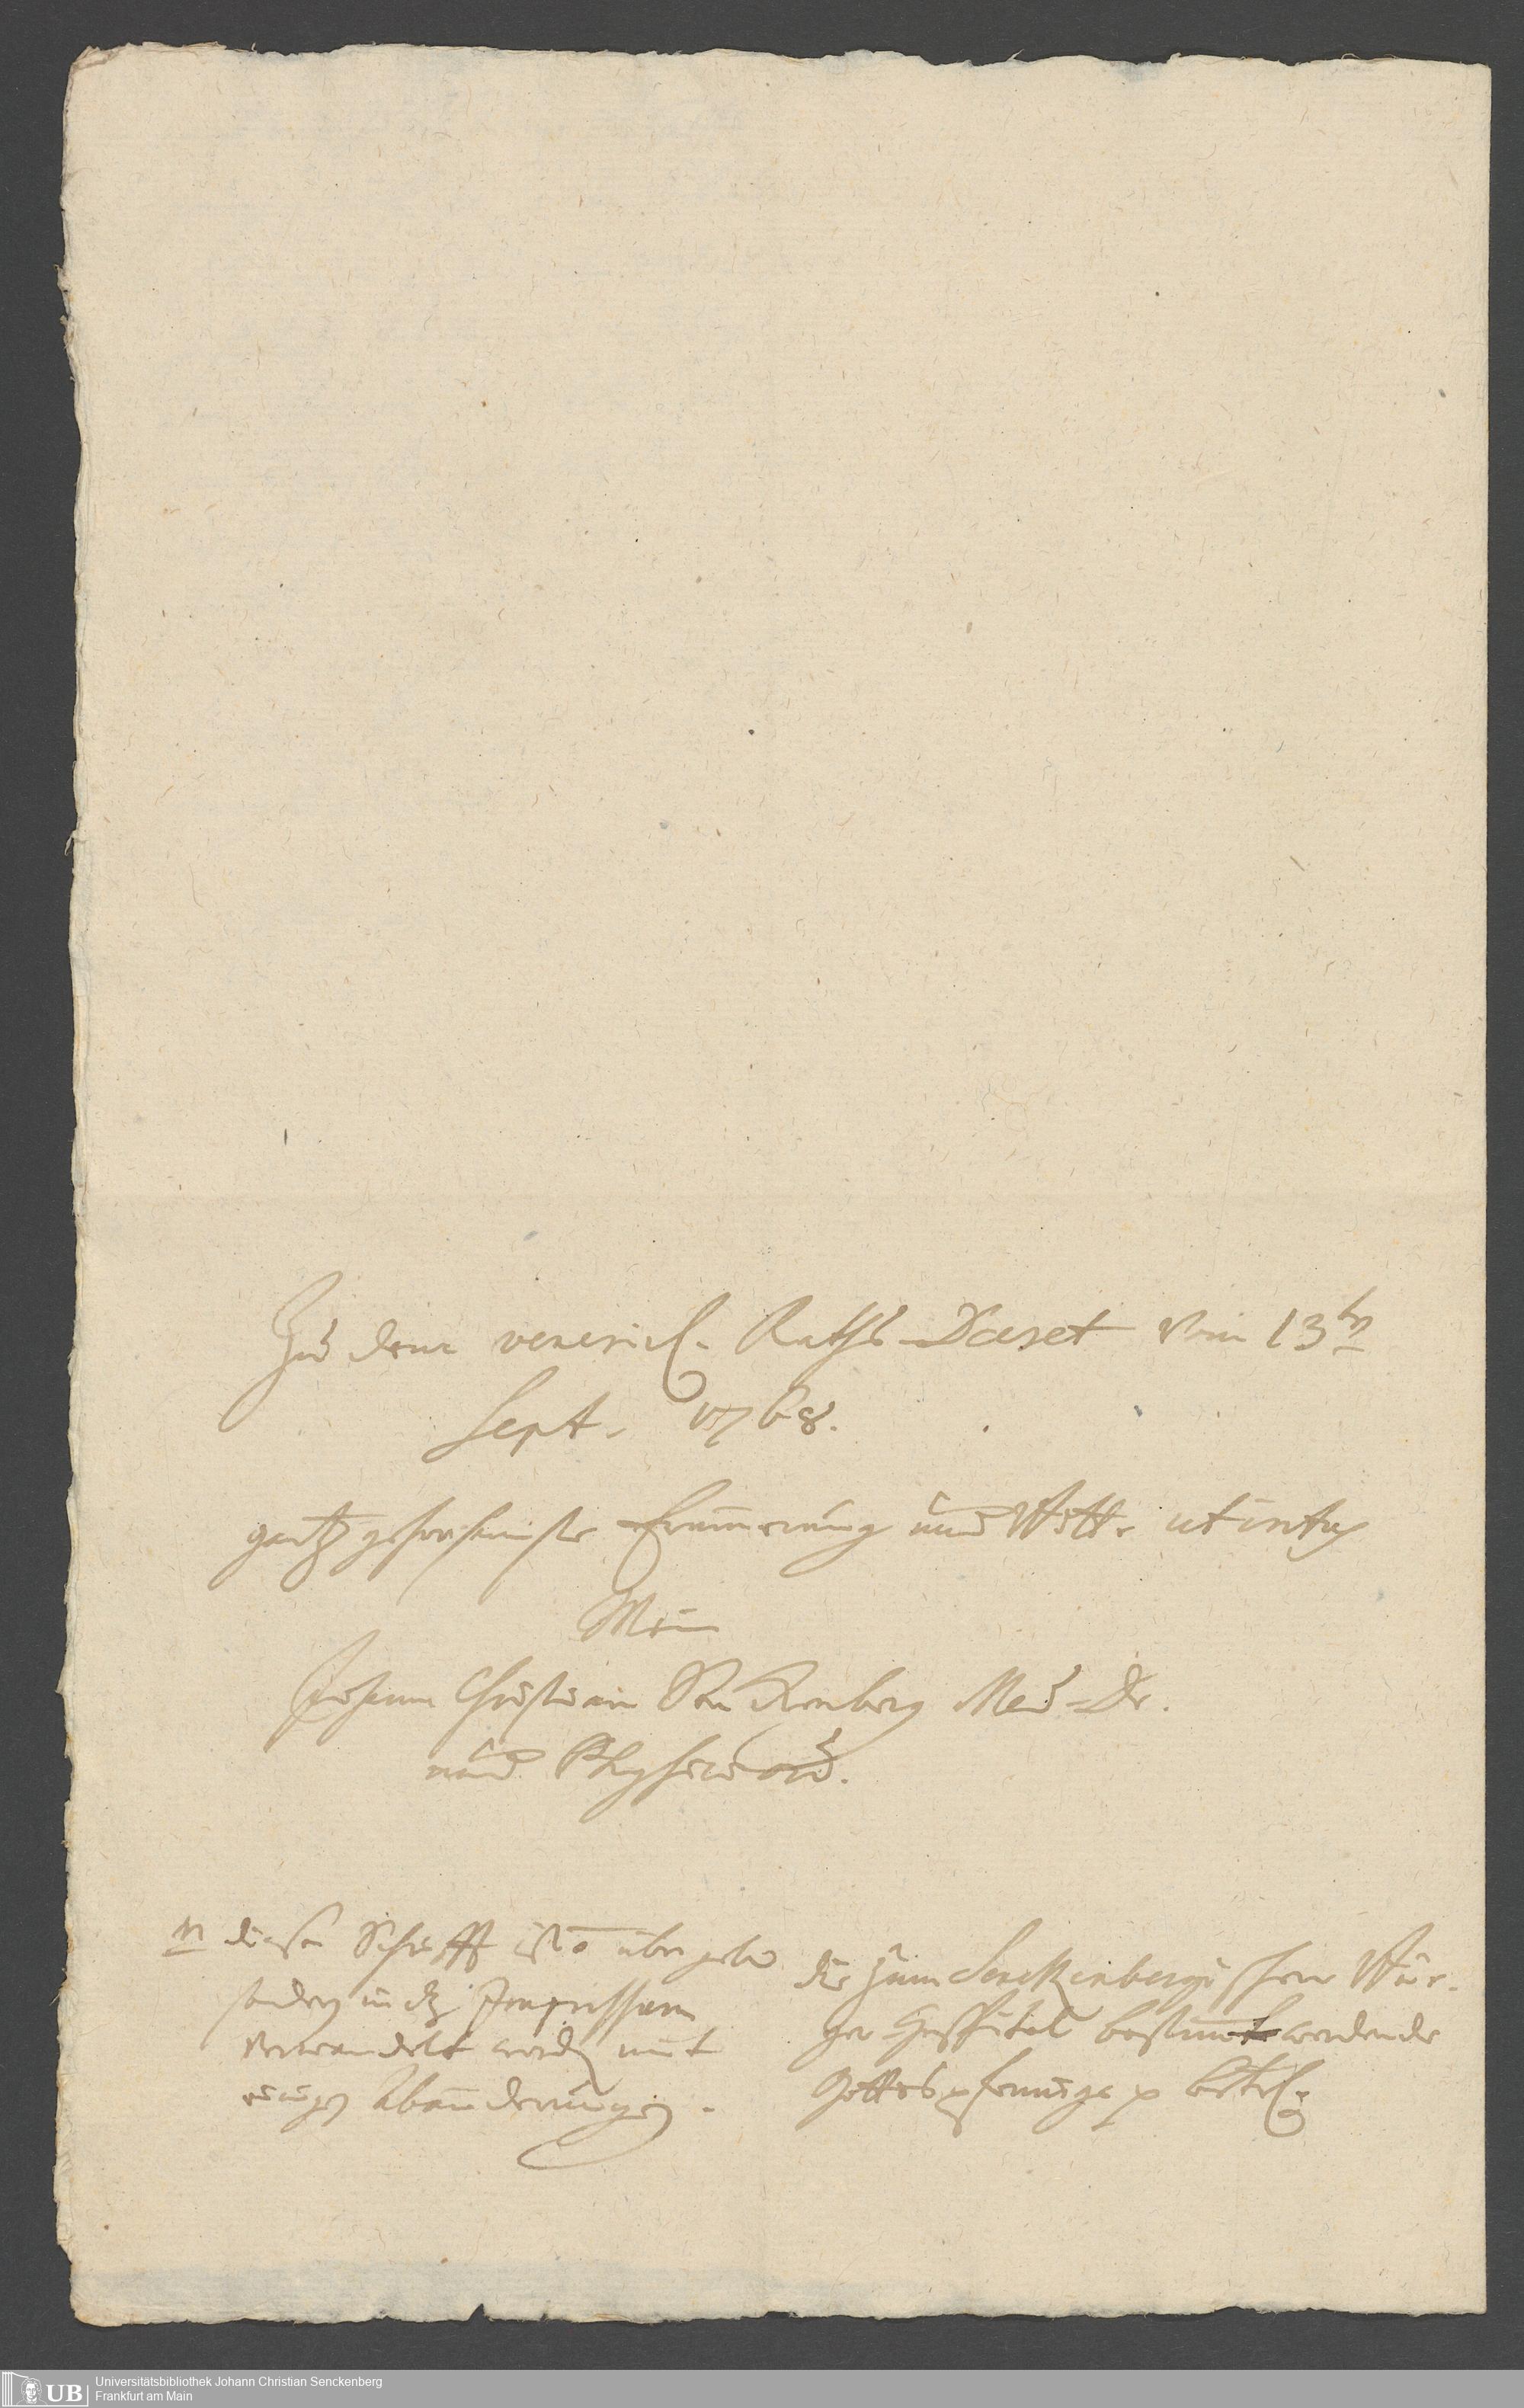 Zu dem venerirl. Raths-Decret vom 13ten
Sept. 1768.
gantz gehorsamste Erinnerung und Bitte ut intus
Mein
Johann Christian Senckenberg Med. Dr.
und Physici ord.
diese Schrifft ist übergeben
sondern in
verwandelt worden mit
einigen Abänderungen.
die zum Senckenbergischen Bür-
ger Hospital bestimmt werdende
Gottespfennige betrl.
Universitätsbibliothek Johann Christian Senckenberg
Frankfurt am Main
UB